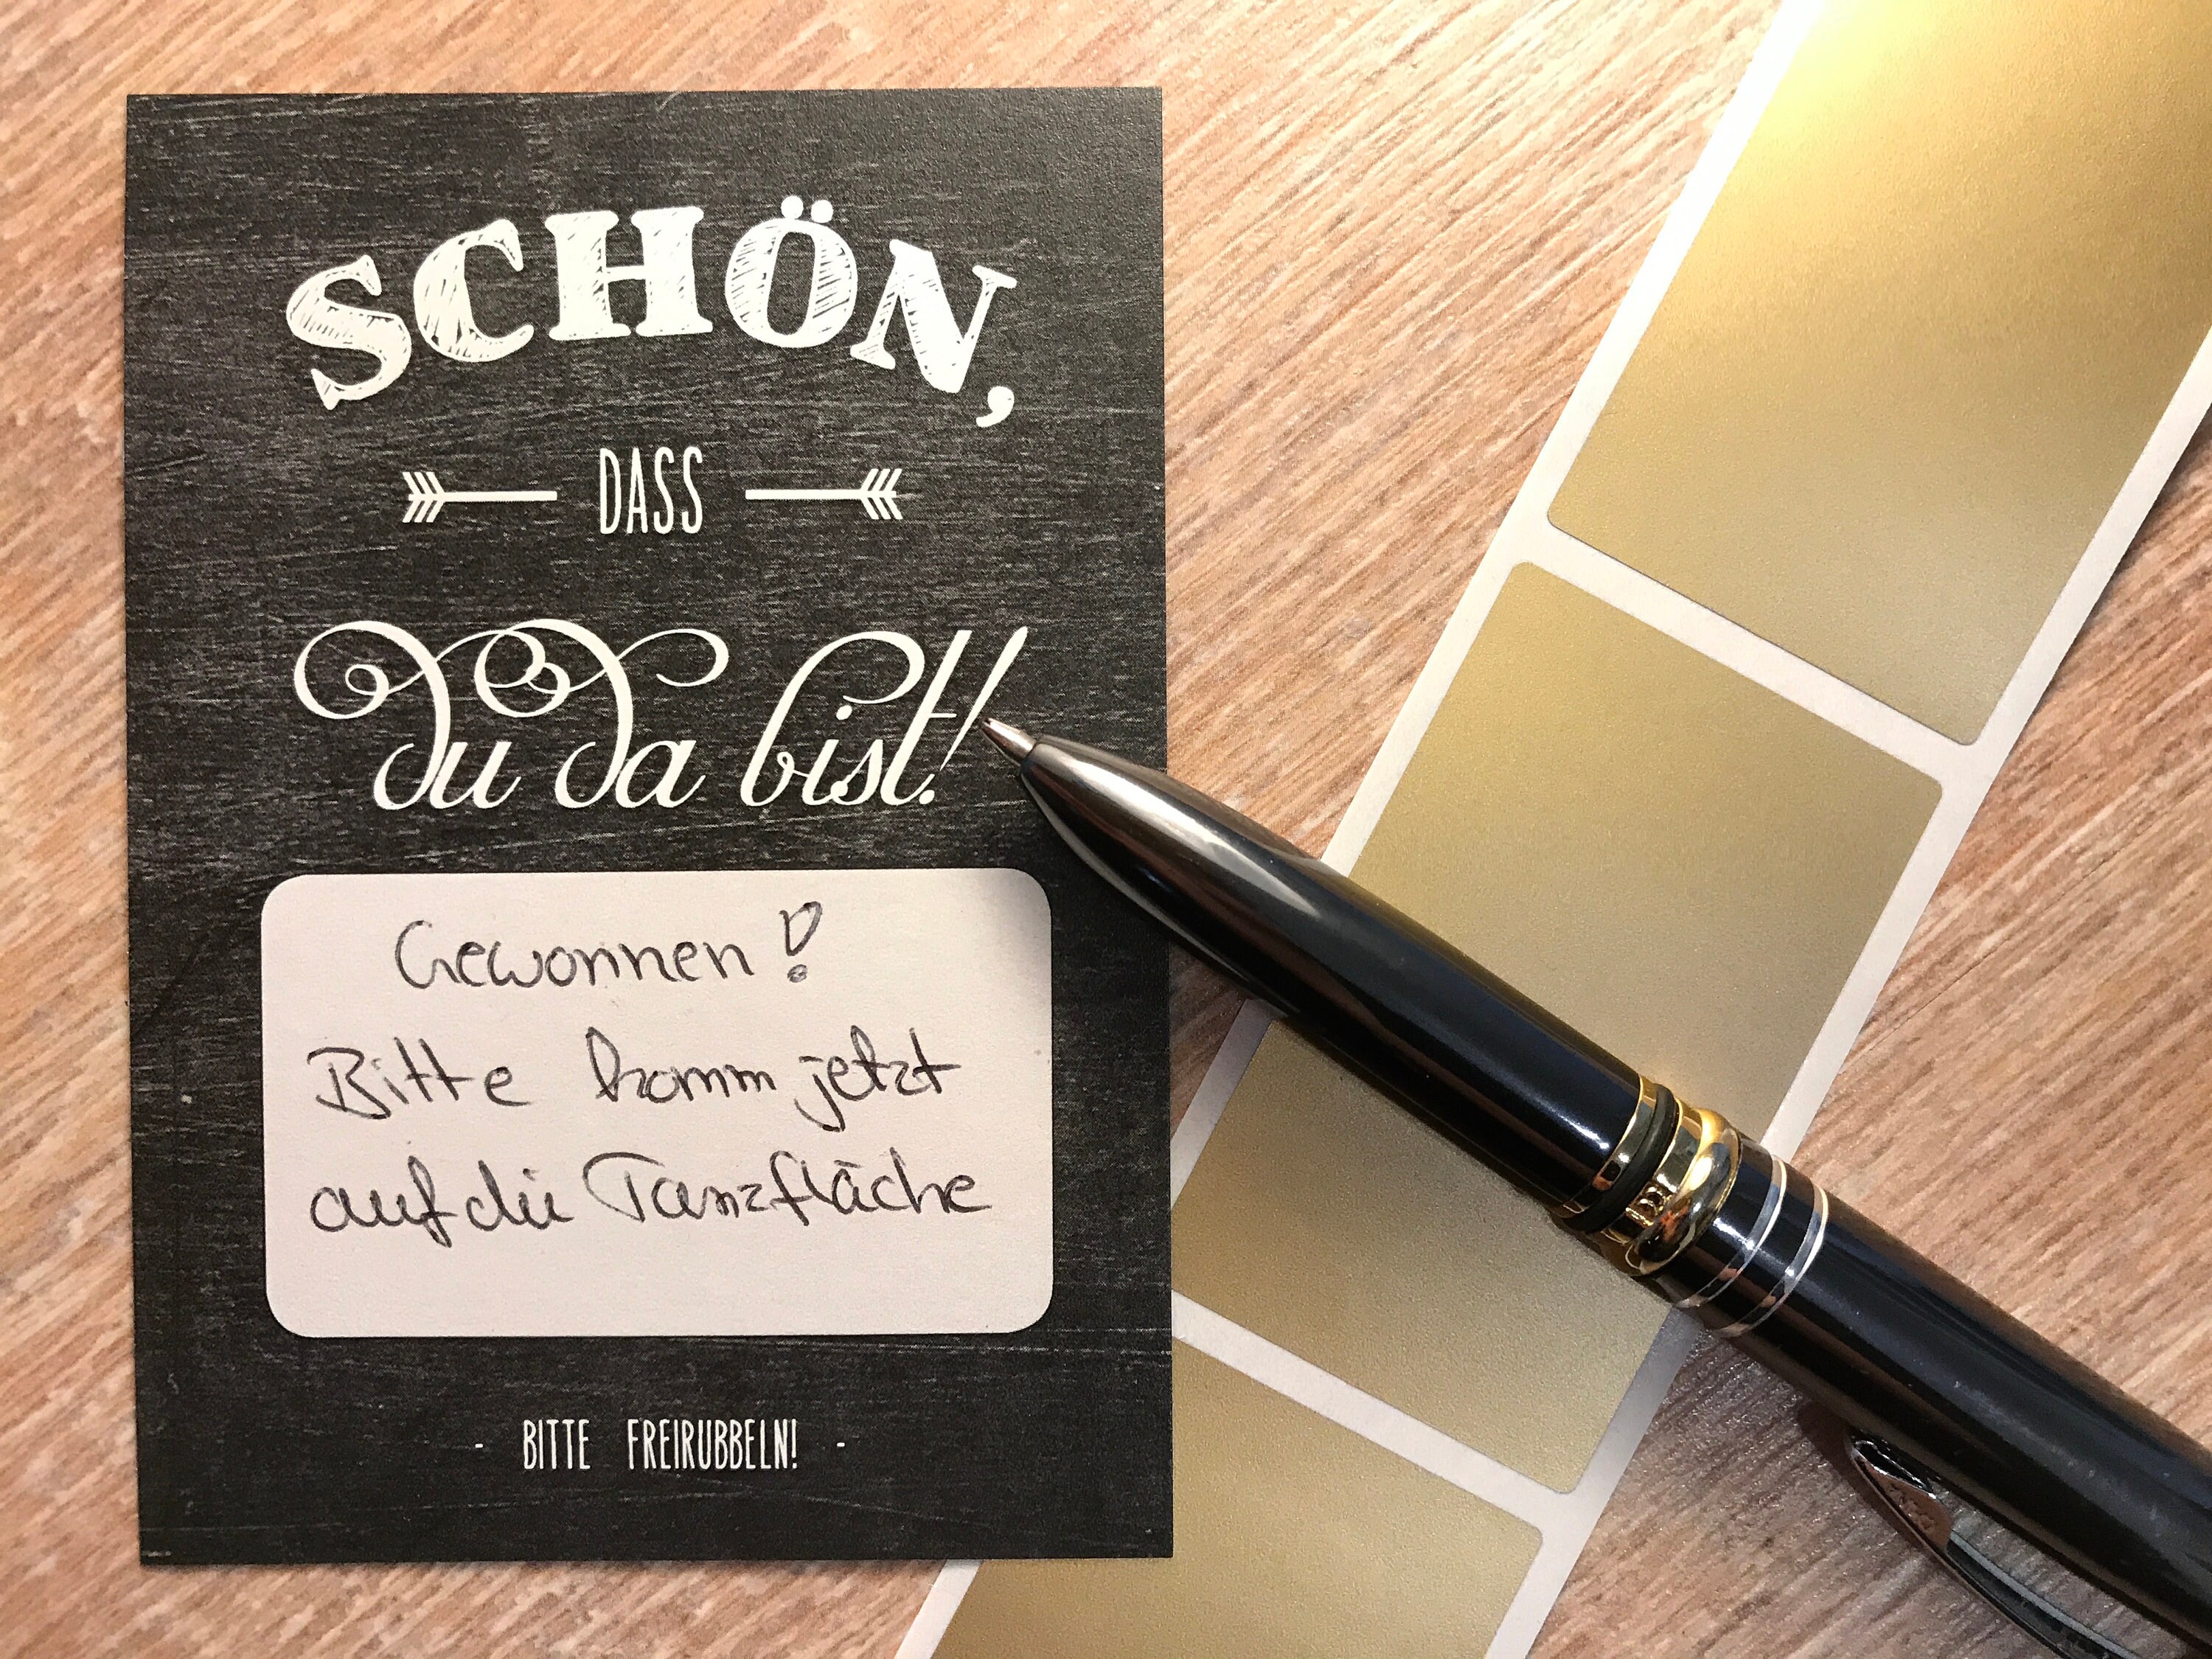 SCHÖN,
DASS
du da bist!
Gewonnen!
Bitte komm jetzt
auf die Tanzfläche
- BITTE FREIRUBBELN! -